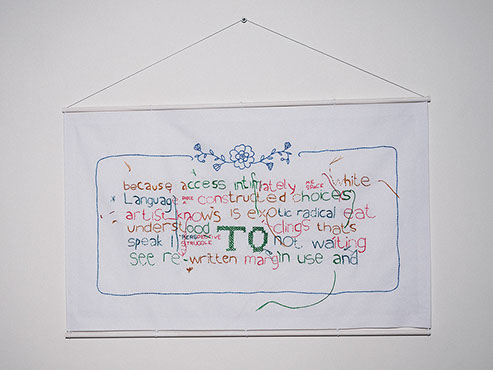 because access intimately ME SPACE white
Language constructed choices
artist knows is exotic radical eat
understood clings that's
speak I PERSPECTIVE STRUGGLE TO not waiting
see re-written margin use and